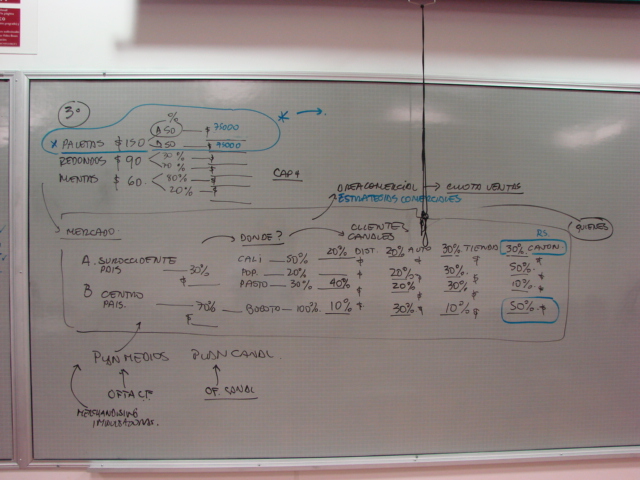 3º
%
* PALETAS $ 150 A 50 — $ 75000
A 50 — $ 75000
REDONDOS $ 90 30% — $
70% — $
MENTAS $ 60. 80% — $
20% — $
* →
CAP 4
AREA COMERCIAL → CUOTO VENTAS
ESTRATEGIOS COMERCIALES
QUIENES
MERCADO → DONDE? → CLIENTES
CANALES
RS.
20% DIST. 20% AUTO 30% TIENDO 30% CANON.
A. SUROCCIDENTE
PAIS — 30%
$
CALI — 50% $ $ $ 50% $
POP. — 20% 20% $ 30% $ 10% $
PASTO — 30% 40% $ 20% 30%
B CENTRO
PAIS. — 70%
$
BOGOTO — 100% 10% $ 30% $ 10% $ 50% $
PLAN MEDIOS PLAN CANAL.
OF. CANAL
MERCHANDISING